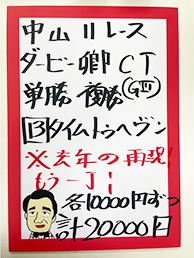 中山11レース
ダービー卿CT
単勝 複勝(GⅢ)
13タイムトゥヘヴン
※去年の再現!
もう一丁!
各10000円ずつ
計20000円